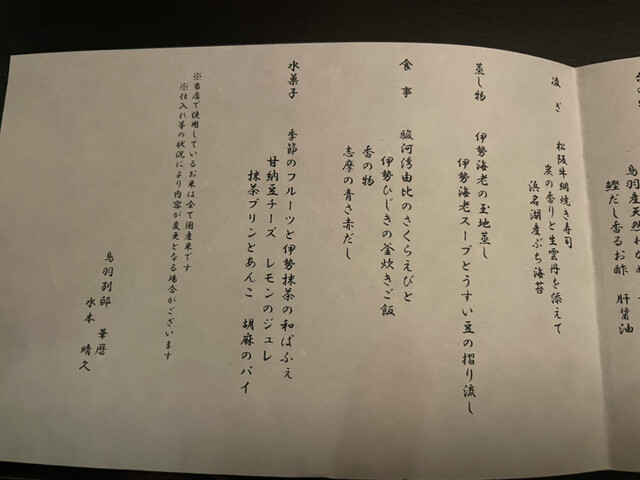 鰹だし香るお酢　肝醤油
凌ぎ
松阪牛網焼き寿司
炭の香りと生雲丹を添えて
浜名湖産ぶち海苔
蒸し物
伊勢海老の玉地蒸し
伊勢海老スープとうすい豆の摺り流し
食事
駿河湾由比のさくらえびと
伊勢ひじきの釜炊きご飯
香の物
志摩の青さ赤だし
水菓子
季節のフルーツと伊勢抹茶の和ぱふぇ
甘納豆チーズ　レモンのジュレ
抹茶プリンとあんこ　胡麻のパイ
※当店で使用しているお米は全て国産米です
※仕入れ等の状況により内容が変更となる場合がございます
鳥羽別邸　華暦
水本　晴久